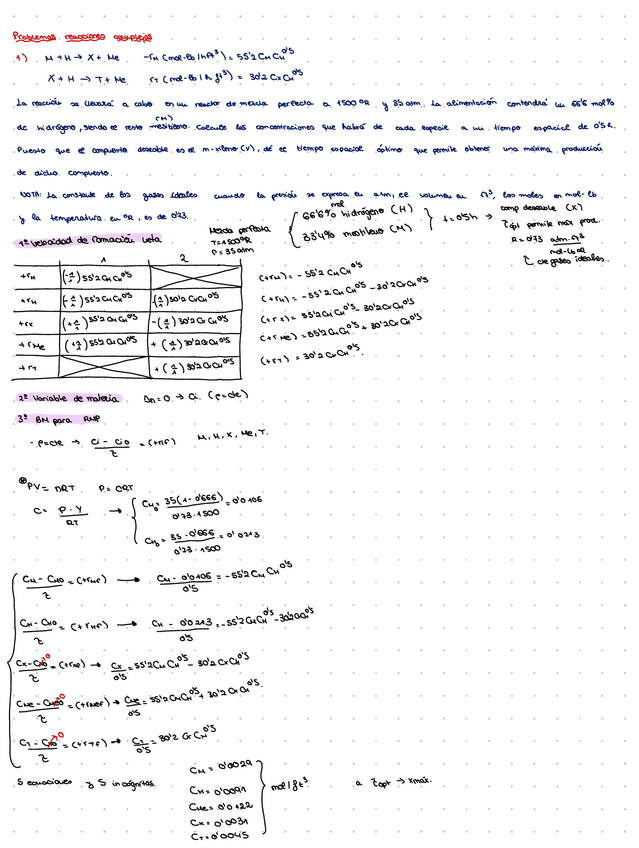 Problemas reacciones complejas
1) M + H → X + Me   -rM (mol-lb/hft³) = 55'2 CM CH^0'5
X + H → T + Me   rT (mol-lb/h ft³) = 30'2 CX CH^0'5
La reacción se llevará a cabo en un reactor de mezcla perfecta a 1500 ºR y 35 atm. La alimentación contendrá un 66'6 mol%
de hidrógeno, siendo el resto mesitileno (M). Calcule las concentraciones que habrá de cada especie a un tiempo espacial de 0'5 h.
Puesto que el compuesto deseable es el m-xileno (X), dé el tiempo espacial óptimo que permite obtener una máxima producción
de dicho compuesto.
NOTA: La constante de los gases ideales cuando la presión se expresa en atm, el volumen en ft³, los moles en mol-lb
y la temperatura en ºR, es de 0'73.
Mezcla perfecta
T = 1500ºR
P = 35 atm
mol
66'6% hidrógeno (H)
33'4% mesitileno (M)
t = 0'5h →
comp deseable (X)
τopt permite max prod.
R = 0'73 atm·ft³
mol-lb ºR
cte gases ideales.
1º Velocidad de formación neta
1 2
+rM (-1/1) 55'2 CM CH^0'5
+rH (-1/1) 55'2 CM CH^0'5 -(1/1) 30'2 CX CH^0'5
+rX (+1/1) 55'2 CM CH^0'5 -(1/1) 30'2 CX CH^0'5
+rMe (+1/1) 55'2 CM CH^0'5 +(1/1) 30'2 CX CH^0'5
+rT +(1/1) 30'2 CX CH^0'5
(+rM) = -55'2 CM CH^0'5
(+rH) = -55'2 CM CH^0'5 - 30'2 CX CH^0'5
(+rX) = 55'2 CM CH^0'5 - 30'2 CX CH^0'5
(+rMe) = 55'2 CM CH^0'5 + 30'2 CX CH^0'5
(+rT) = 30'2 CX CH^0'5
2º Variable de materia. Δn = 0 → Ci. (ρ=cte)
3º BM para RMP
- ρ=cte → Ci - Ci0 / τ = (+rif)   M, H, X, Me, T.
PV = nRT   P = CRT
C = P·Y / RT →
CM0 = 35(1-0'666) / 0'73·1500 = 0'0106
CH0 = 35·0'666 / 0'73·1500 = 0'0213
CM - CM0 / τ = (+rMf) → CM - 0'0106 / 0'5 = -55'2 CM CH^0'5
CH - CH0 / τ = (+rHf) → CH - 0'0213 / 0'5 = -55'2 CM CH^0'5 - 30'2 CX CH^0'5
CX - CX0 →0 / τ = (+rXf) → CX / 0'5 = 55'2 CM CH^0'5 - 30'2 CX CH^0'5
CMe - CMe0 →0 / τ = (+rMef) → CMe / 0'5 = 55'2 CM CH^0'5 + 30'2 CX CH^0'5
CT - CT0 →0 / τ = (+rTf) → CT / 0'5 = 30'2 CX CH^0'5
5 ecuaciones y 5 incógnitas.
CM = 0'0029
CH = 0'0091
CMe = 0'0122
CX = 0'0031
CT = 0'0045
mol / ft³
a τopt → xmax.